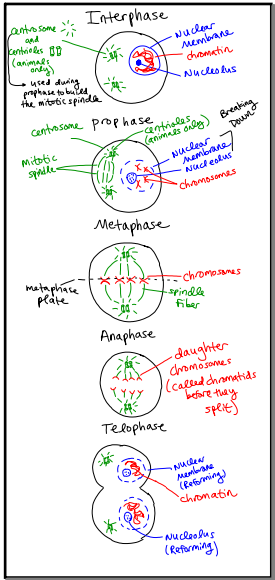 Interphase
centrosome
and
centrioles
(animals
only)
used during
prophase to build
the mitotic spindle
Nuclear
membrane
chromatin
Nucleolus
Prophase
centrosome
centrioles
(animals only)
Mitotic
spindle
Nuclear
membrane
Nucleolus
chromosomes
Breaking
Down
Metaphase
metaphase
plate
chromosomes
spindle
Fiber
Anaphase
daughter
chromosomes
(called chromatids
before they
split)
Telophase
Nuclear
membrane
(Reforming)
chromatin
Nucleolus
(Reforming)